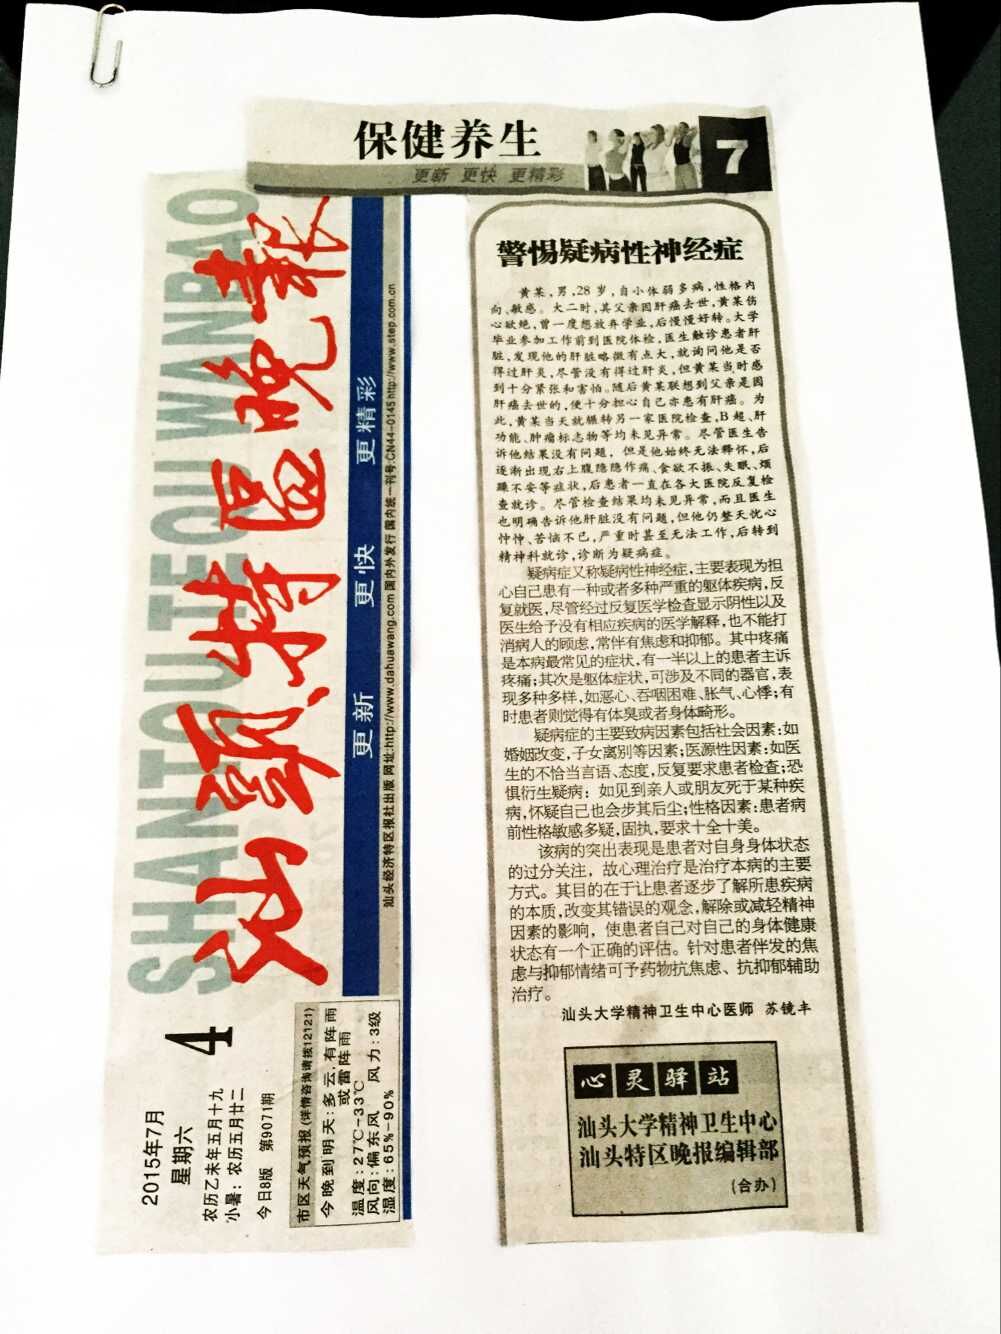 保健养生
更新 更快 更精彩
7
SHANTOU TEQU WANBAO
汕頭特區晚報
更新 更快 更精彩
汕头经济特区报社出版 网址:http://www.dahuawang.com 国内外发行 国内统一刊号:CN44-0145 http://www.step.com.cn
2015年7月
4
星期六
农历乙未年五月十九
小暑：农历五月廿二
今日8版 第9071期
市区天气预报(详情咨询请拨12121)
今晚到明天：多云,有阵雨
或雷阵雨
温度：27℃-33℃
风向：偏东风 风力：3级
湿度：65%-90%
警惕疑病性神经症
黄某,男,28岁,自小体弱多病,性格内
向、敏感。大二时,其父亲因肝癌去世,黄某伤
心欲绝,曾一度想放弃学业,后慢慢好转。大学
毕业参加工作前到医院体检,医生触诊患者肝
脏,发现他的肝脏略微有点大,就询问他是否
得过肝炎,尽管没有得过肝炎,但黄某当时感
到十分紧张和害怕。随后黄某联想到父亲是因
肝癌去世的,便十分担心自己亦患有肝癌。为
此,黄某当天就辗转另一家医院检查,B超、肝
功能、肿瘤标志物等均未见异常。尽管医生告
诉他结果没有问题,但是他始终无法释怀,后
逐渐出现右上腹隐隐作痛、食欲不振、失眠、烦
躁不安等症状,后患者一直在各大医院反复检
查就诊。尽管检查结果均未见异常,而且医生
也明确告诉他肝脏没有问题,但他仍整天忧心
忡忡、苦恼不已,严重时甚至无法工作,后转到
精神科就诊,诊断为疑病症。
疑病症又称疑病性神经症,主要表现为担
心自己患有一种或者多种严重的躯体疾病,反
复就医,尽管经过反复医学检查显示阴性以及
医生给予没有相应疾病的医学解释,也不能打
消病人的顾虑,常伴有焦虑和抑郁。其中疼痛
是本病最常见的症状,有一半以上的患者主诉
疼痛;其次是躯体症状,可涉及不同的器官,表
现多种多样,如恶心、吞咽困难、胀气、心悸;有
时患者则觉得有体臭或者身体畸形。
疑病症的主要致病因素包括社会因素:如
婚姻改变,子女离别等因素;医源性因素:如医
生的不恰当言语、态度,反复要求患者检查;恐
惧衍生疑病：如见到亲人或朋友死于某种疾
病,怀疑自己也会步其后尘;性格因素:患者病
前性格敏感多疑,固执,要求十全十美。
该病的突出表现是患者对自身身体状态
的过分关注，故心理治疗是治疗本病的主要
方式。其目的在于让患者逐步了解所患疾病
的本质,改变其错误的观念,解除或减轻精神
因素的影响，使患者自己对自己的身体健康
状态有一个正确的评估。针对患者伴发的焦
虑与抑郁情绪可予药物抗焦虑、抗抑郁辅助
治疗。
汕头大学精神卫生中心医师 苏镜丰
心灵驿站
汕头大学精神卫生中心
汕头特区晚报编辑部
(合办)